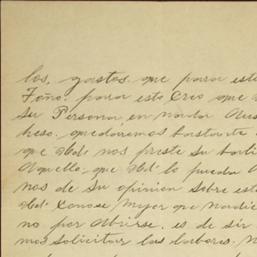 los, gastos. que para est
para esto Creo que
su Persona, en nada Aus
heso. quedaremos bastante
que Ud. nos preste su
Aquello, que Ud. lo pueda
nos de su opinion sobre est
Ud. Conose, mejor que nadie
no por Abrirse. es de sir
mos solicitar las labores.